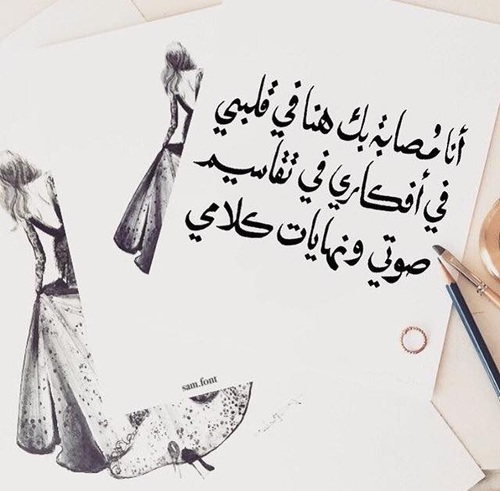 أنا مُصابة بك هنا في قلبي
في أفكاري في تقاسيم
صوتي ونهايات كلامي
sam.font